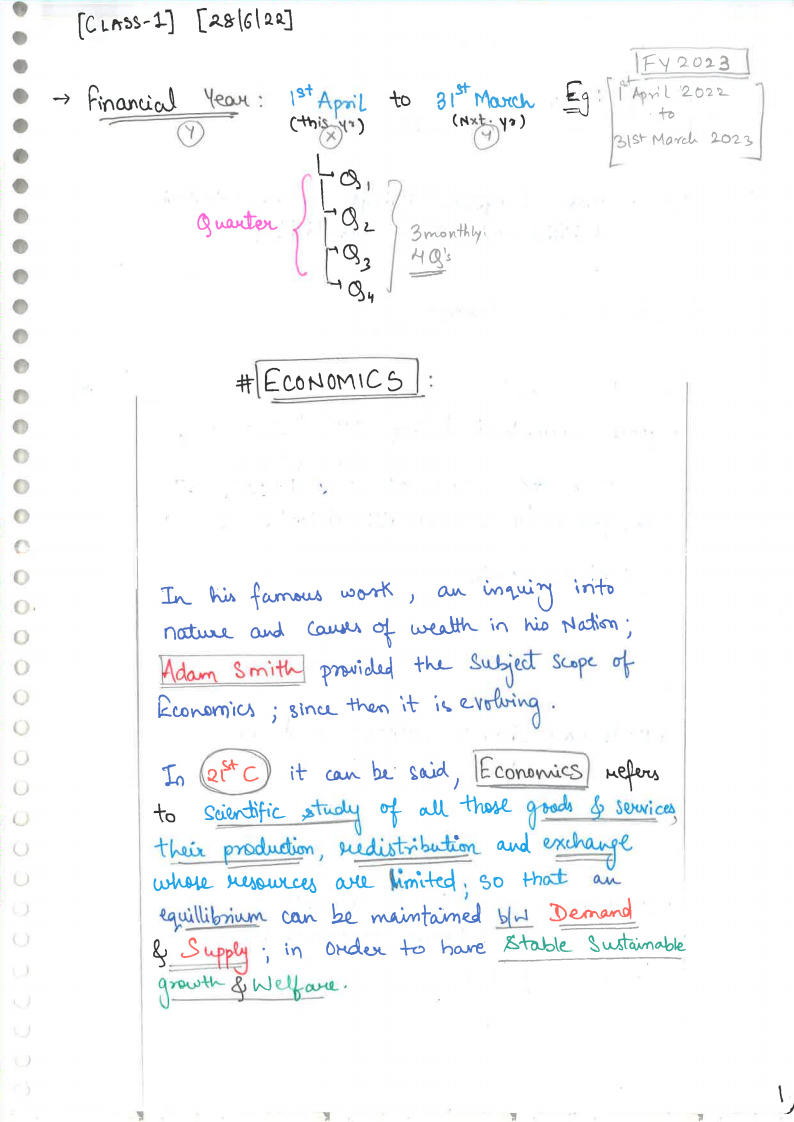 [CLASS-1] [28/6/22]
FY 2023
→ Financial Year : 1st April to 31st March Eg : 1st April 2022
(this yr) (Nxt. yr) to
Y X Y 31st March 2023
Q1
Quarter Q2 3 monthly.
Q3 4 Q's
Q4
# ECONOMICS :
In his famous work, an inquiry into
nature and causes of wealth in his Nation;
Adam Smith provided the Subject scope of
Economics ; since then it is evolving.
In 21st C it can be said, Economics refers
to Scientific study of all those goods & services,
their production, redistribution and exchange
whose resources are limited; so that an
equillibrium can be maintained b/w Demand
& Supply ; in order to have Stable Sustainable
growth & Welfare.
1